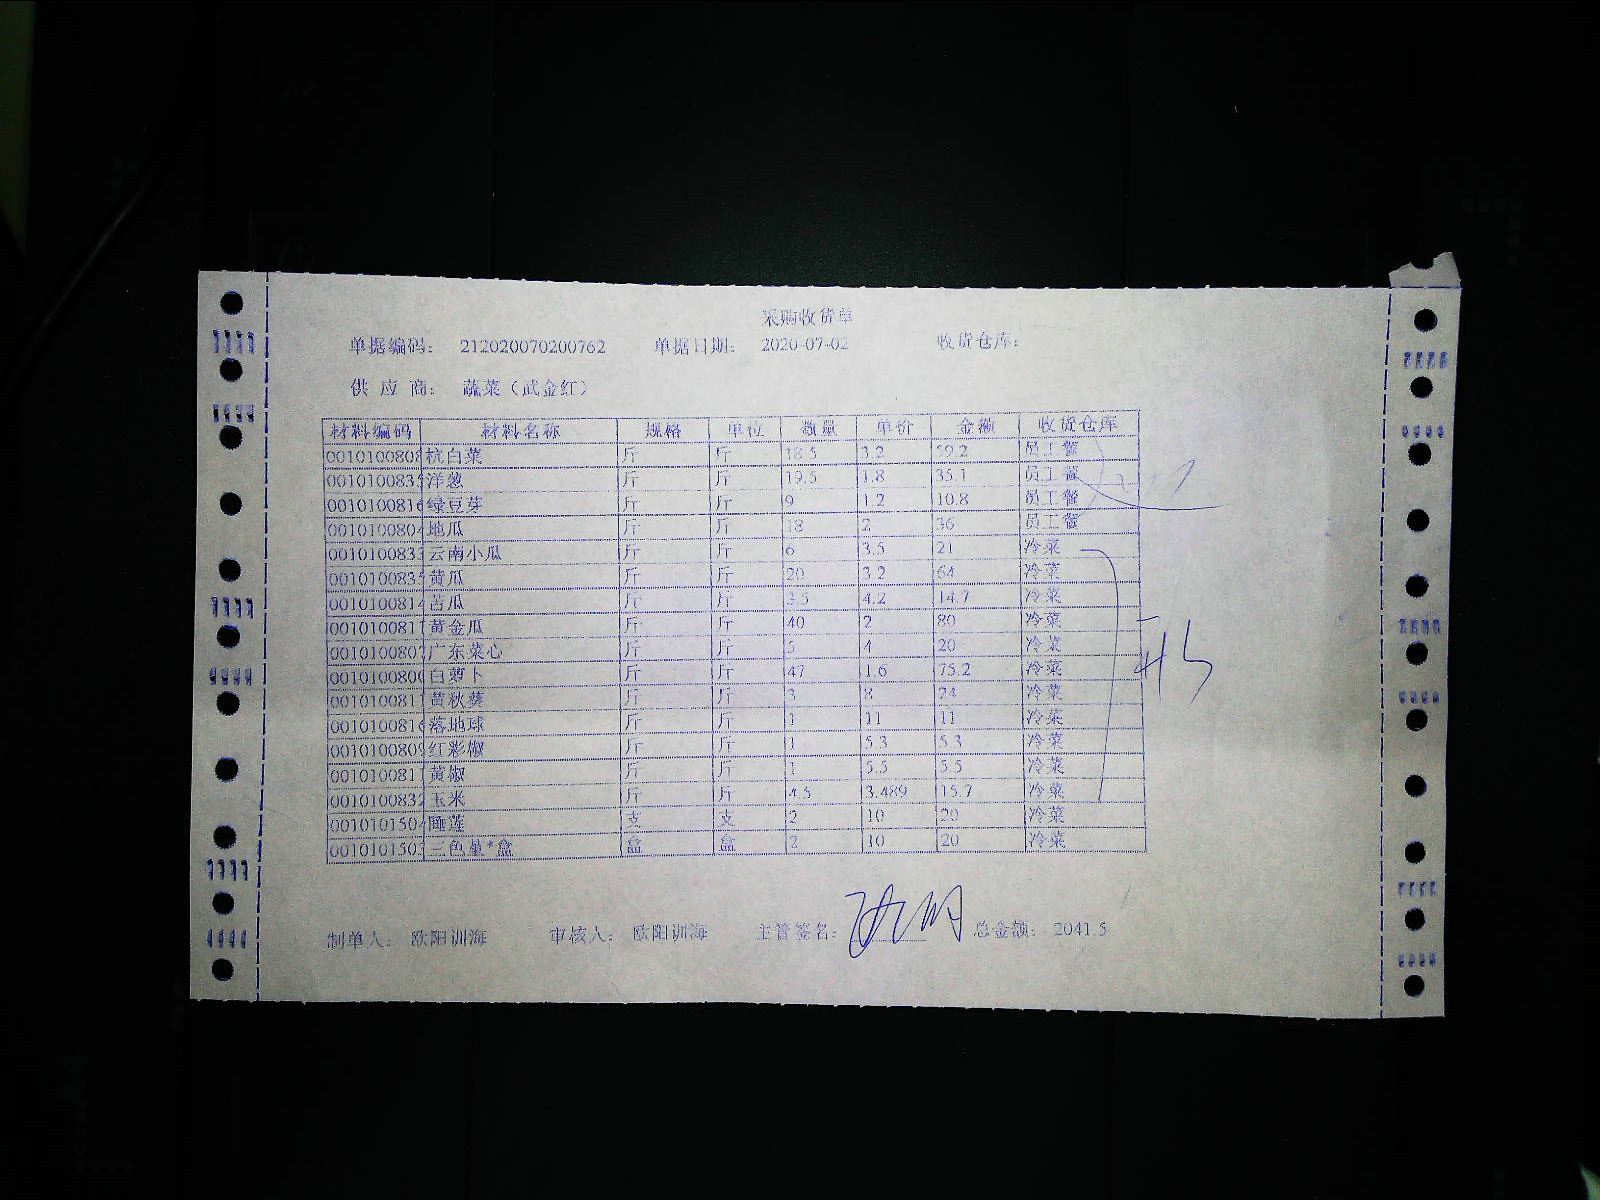 采购收货单
单据编码： 212020070200762 单据日期： 2020-07-02 收货仓库：
供 应 商： 蔬菜（武金红）
材料编码 材料名称 规格 单位 数量 单价 金额 收货仓库
0010100808 杭白菜 斤 斤 18.5 3.2 59.2 员工餐
001010083 洋葱 斤 斤 19.5 1.8 35.1 员工餐
0010100816 绿豆芽 斤 斤 9 1.2 10.8 员工餐
001010080 地瓜 斤 斤 18 2 36 员工餐
001010083 云南小瓜 斤 斤 6 3.5 21 冷菜
001010083 黄瓜 斤 斤 20 3.2 64 冷菜
001010081 苦瓜 斤 斤 3.5 4.2 14.7 冷菜
001010081 黄金瓜 斤 斤 40 2 80 冷菜
001010080 广东菜心 斤 斤 5 4 20 冷菜
001010080 白萝卜 斤 斤 47 1.6 75.2 冷菜
001010081 黄秋葵 斤 斤 3 8 24 冷菜
0010100816 落地球 斤 斤 1 11 11 冷菜
0010100809 红彩椒 斤 斤 1 5.3 5.3 冷菜
001010081 黄椒 斤 斤 1 5.5 5.5 冷菜
001010083 玉米 斤 斤 4.5 3.489 15.7 冷菜
001010150 睡莲 支 支 2 10 20 冷菜
001010150 三色堇*盒 盒 盒 2 10 20 冷菜
制单人： 欧阳训海 审核人： 欧阳训海 主管签名： 总金额： 2041.5